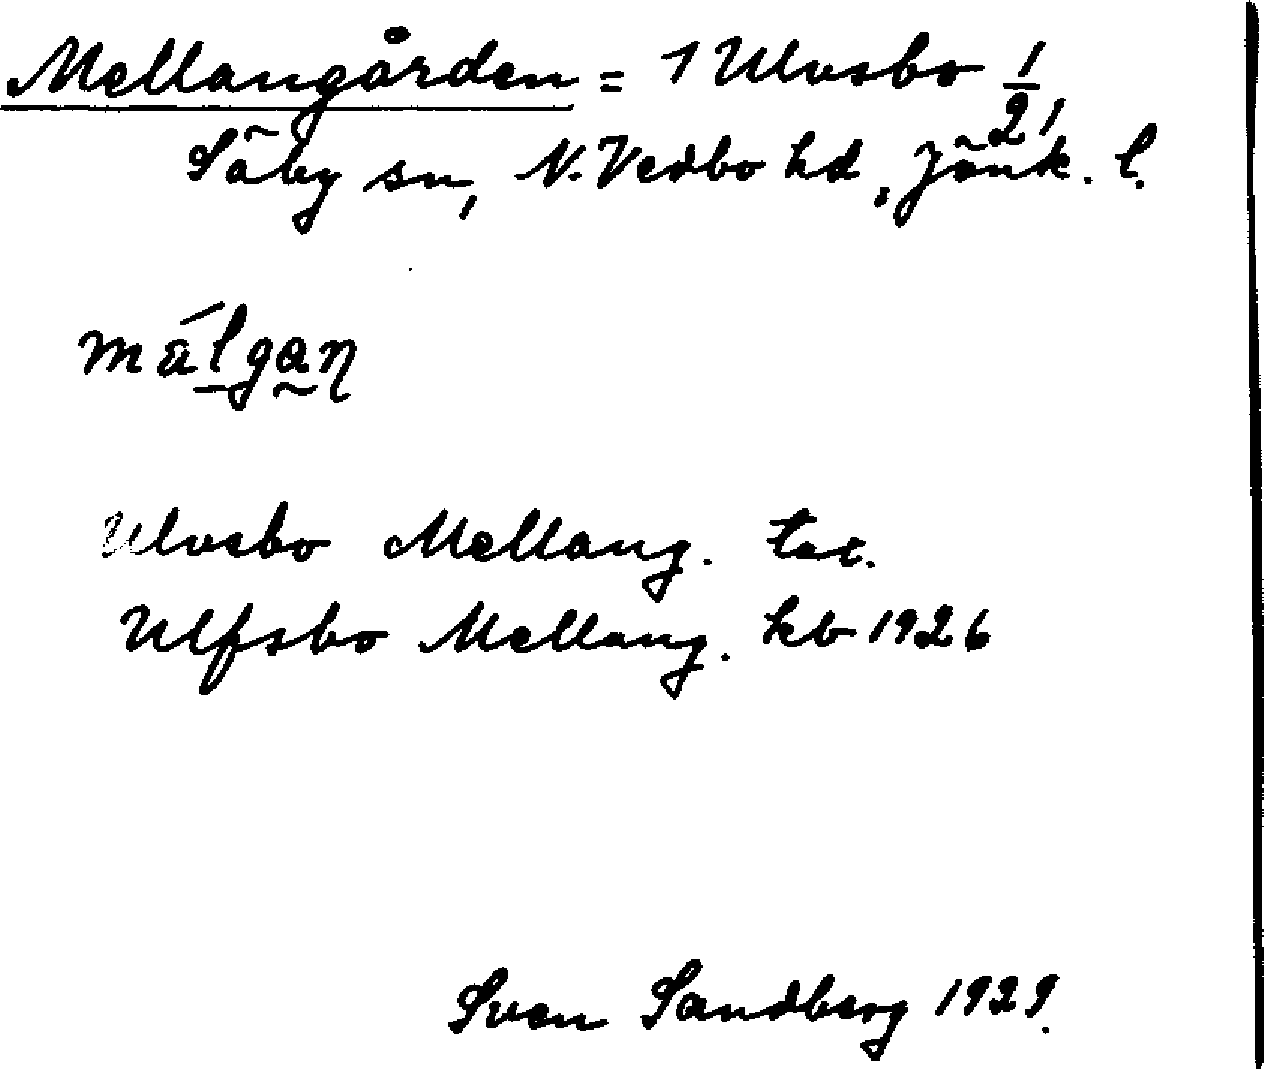 Mellangården = 1 Ulvsbo 1/2,
Säby sn, N. Vedbo hd, Jönk. l.
málgan
Ulvsbo Mellang. tax.
Ulfsbo Mellang. kb 1926
Sven Sandberg 1929.